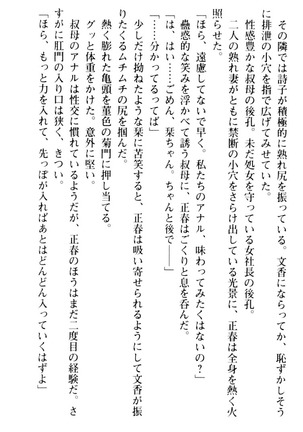 その隣では詩子が積極的に熟れ尻を振っている。文香にならってか、恥ずかしそう
に排泄の小穴を指で広げてみせていた。
性感豊かな叔母の後孔。未だ処女を守っている女社長の後孔。
二人の熟れ妻がともに禁断の小穴をさらけ出している光景に、正春は全身を熱く火
照らせた。
「ほら、遠慮してないで早く。私たちのアナル、味わってみたくはないの？」
蠱惑的な笑みを浮かべて誘う叔母に、正春はごくりと息を呑んだ。
「は、はい……ごめん、栞ちゃん。ちゃんと後で――」
「……分かってるってば」
少しだけ拗ねたような栞に苦笑すると、正春は吸い寄せられるようにして文香が振
りたくるムチムチの尻を掴んだ。
熱く膨れた亀頭を菫色の菊門に押し当てる。
グッと体重をかけた。意外に堅い。
叔母のアナルは性交に慣れているようだが、正春のほうはまだ二度目の経験だ。さ
すがに肛門の入り口は狭く、きつい。
「ほら、もっと力を入れて、先っぽが入ればあとはどんどん入っていくはずよ」